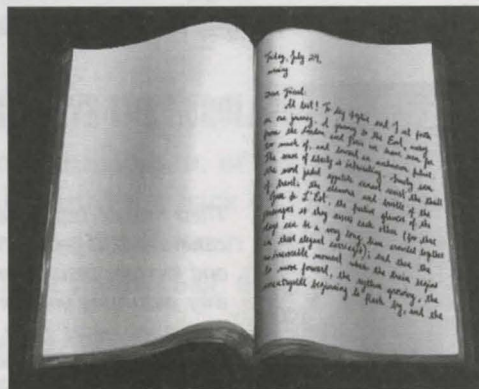 Friday, July 29,
evening
Dear Friend:
At last! To day Sophie and I set forth
on our journey. A journey to the East, away
from the London and Paris we have seen far
too much of, and toward an unknown future.
The sense of liberty is intoxicating. Surely even
the most jaded appetite cannot resist the thrill
of travel: the clamour and bustle of the
Gare de L'Est, the furtive glances of the
passengers as they assess each other (for three
days can be a very long time crowded together
in that elegant carriage); and then the
irreversible moment when the train begins
to move forward, the rhythm growing, the
beginning to flash by, and the